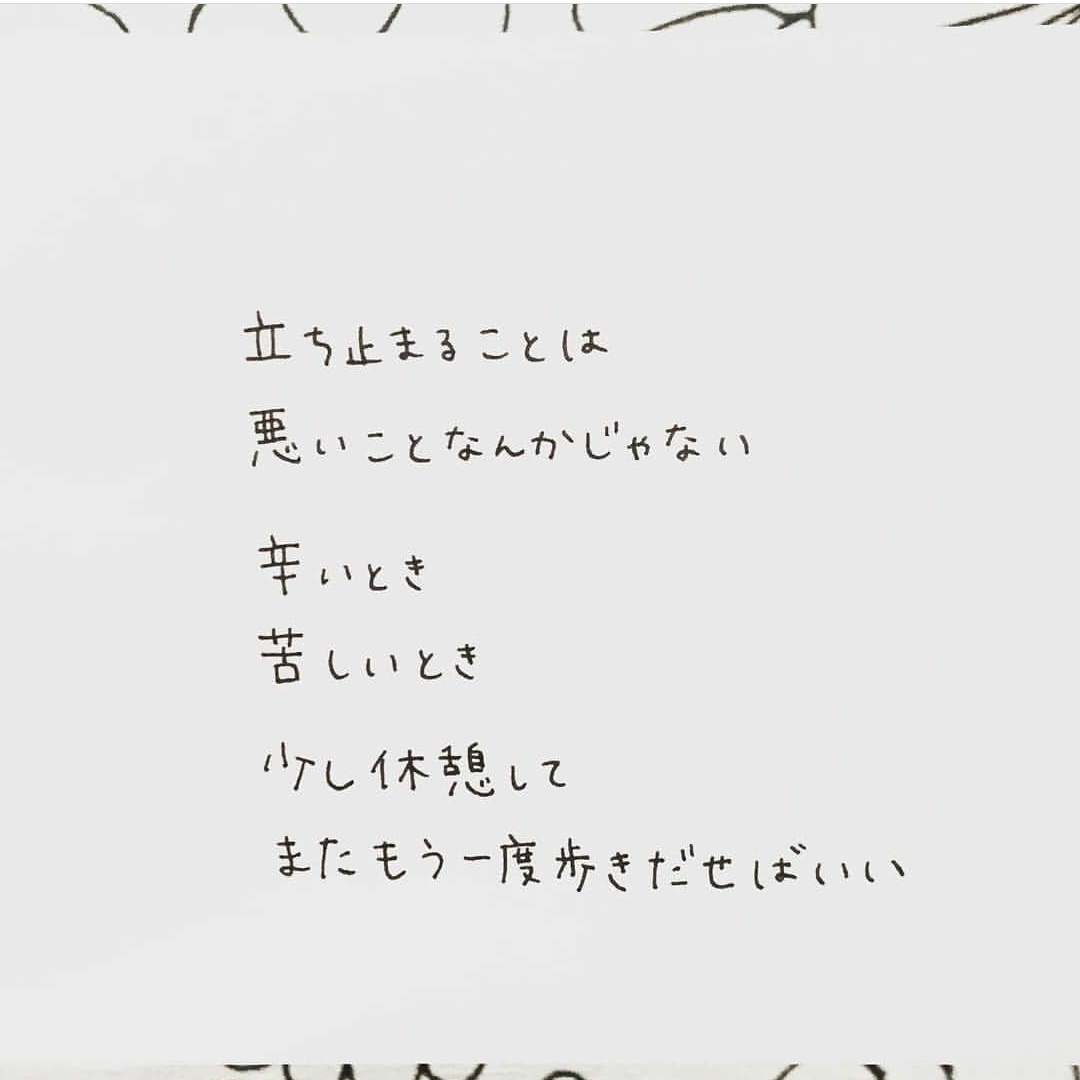 立ち止まることは
悪いことなんかじゃない
辛いとき
苦しいとき
少し休憩して
またもう一度歩きだせばいい